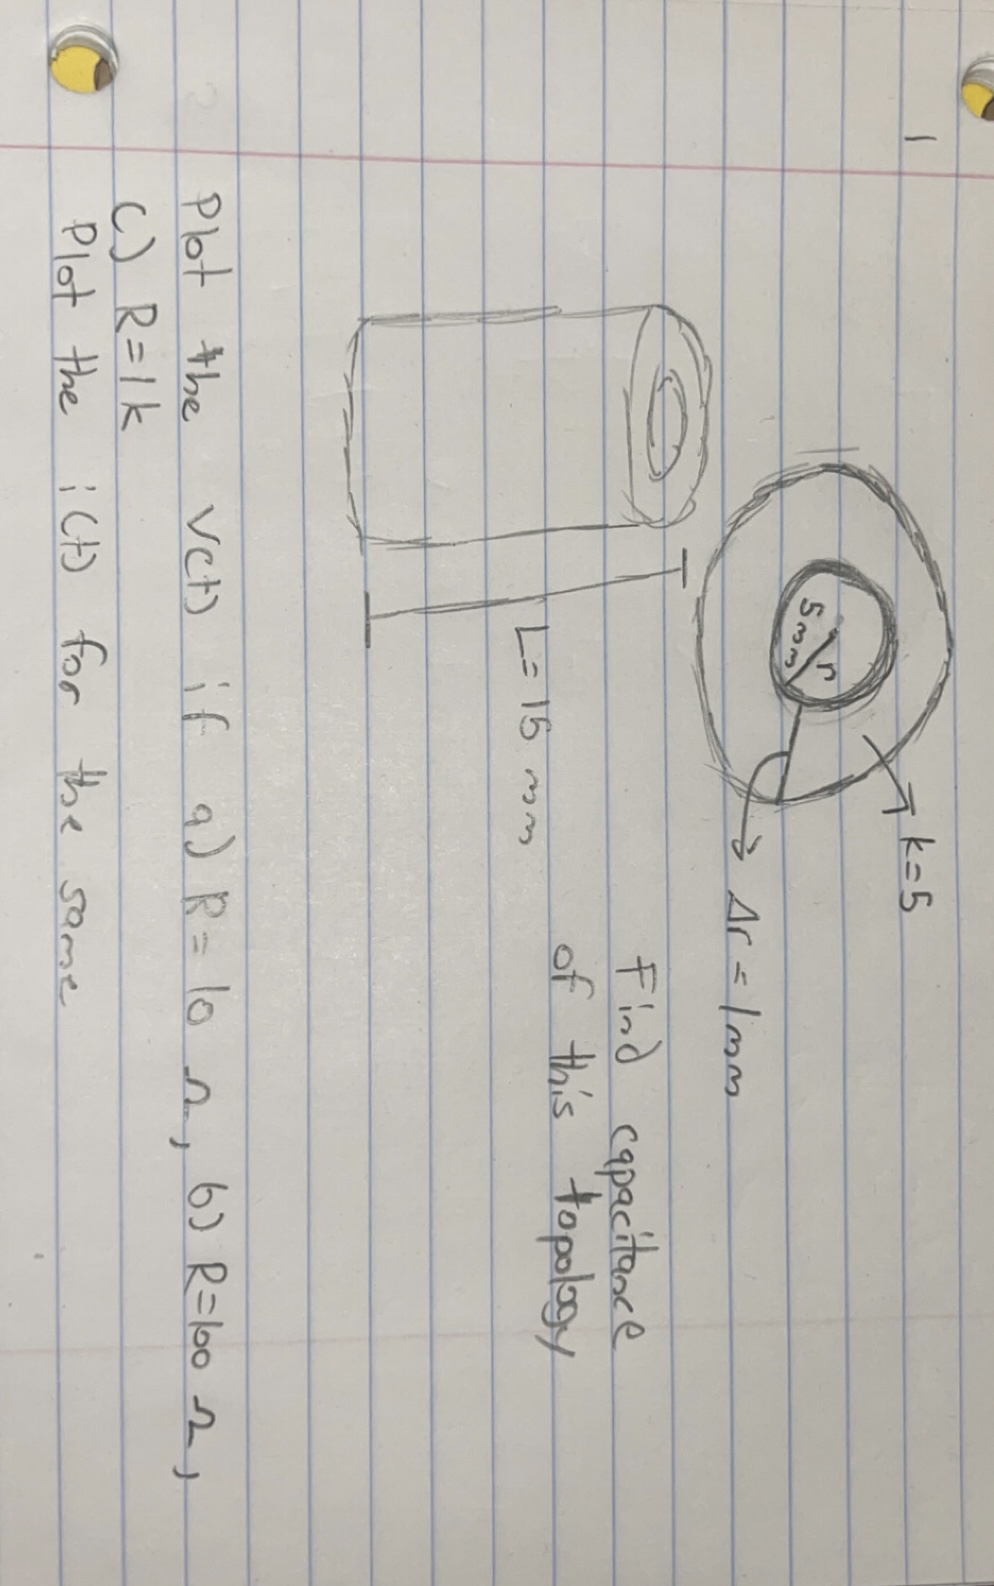 1
k=5
r
5mm
Δr = 1mm
Find capacitance
of this topology
L=15 mm
Plot the v(t) if a) R = 10 Ω, b) R=100 Ω,
c) R=1k
Plot the i(t) for the same